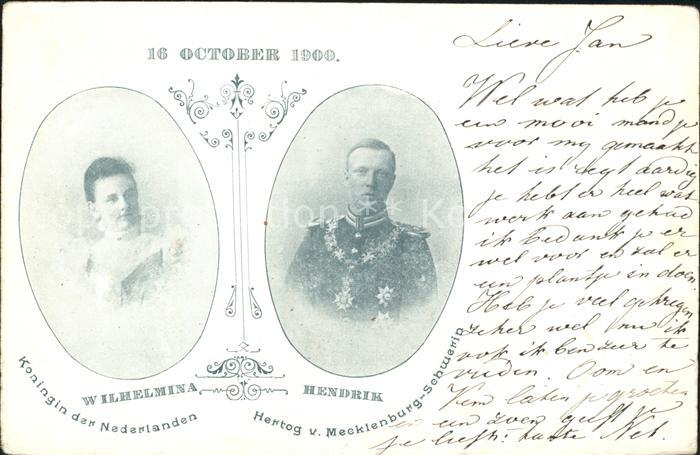 16 OCTOBER 1900.
WILHELMINA
Koningin der Nederlanden
HENDRIK
Hertog v. Mecklenburg-Schwerin
Lieve Jan
Wel wat heb je
een mooi mandje
voor my gemaakt
het is regt aardig
je hebt er heel wat
werk aan gehad
ik bedank je er
wel voor en zal er
een plantje in doen
Heb je veel gekregen
zeker wel nu ik
ook ik ben zeer te
vreden. Oom en
laten je groeten
en een zoen geeft je
je liefh: tante Net.